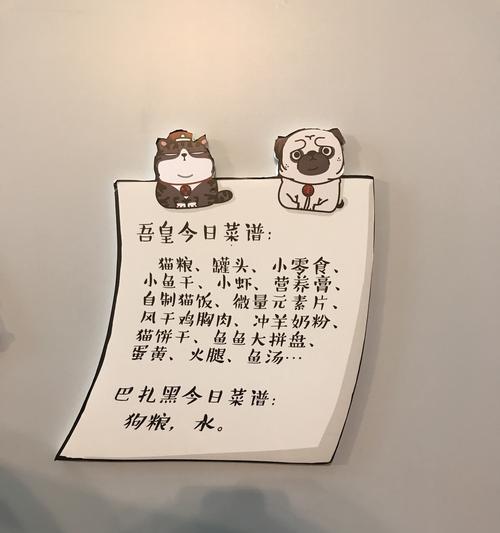 吾皇今日菜谱：
猫粮、罐头、小零食、
小鱼干、小虾、营养膏、
自制猫饭、微量元素片、
风干鸡胸肉、冲羊奶粉、
猫饼干、鱼鱼大拼盘、
蛋黄、火腿、鱼汤…
巴扎黑今日菜谱：
狗粮，水。